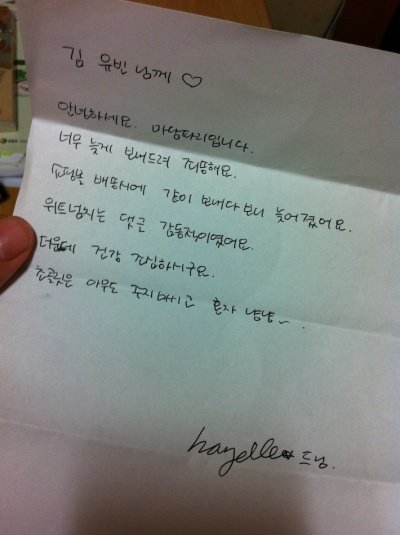 김 유빈 님께 ♡
안녕하세요. 마담파리입니다.
너무 늦게 보내드려 죄송해요.
쇼핑몰 배송시에 같이 보내다 보니 늦어졌어요.
위트넘치는 댓글 감동적이였어요.
더운데 건강 조심하시구요.
초콜릿은 아무도 주지마시고 혼자 냠냠~.
hayelle 드림.